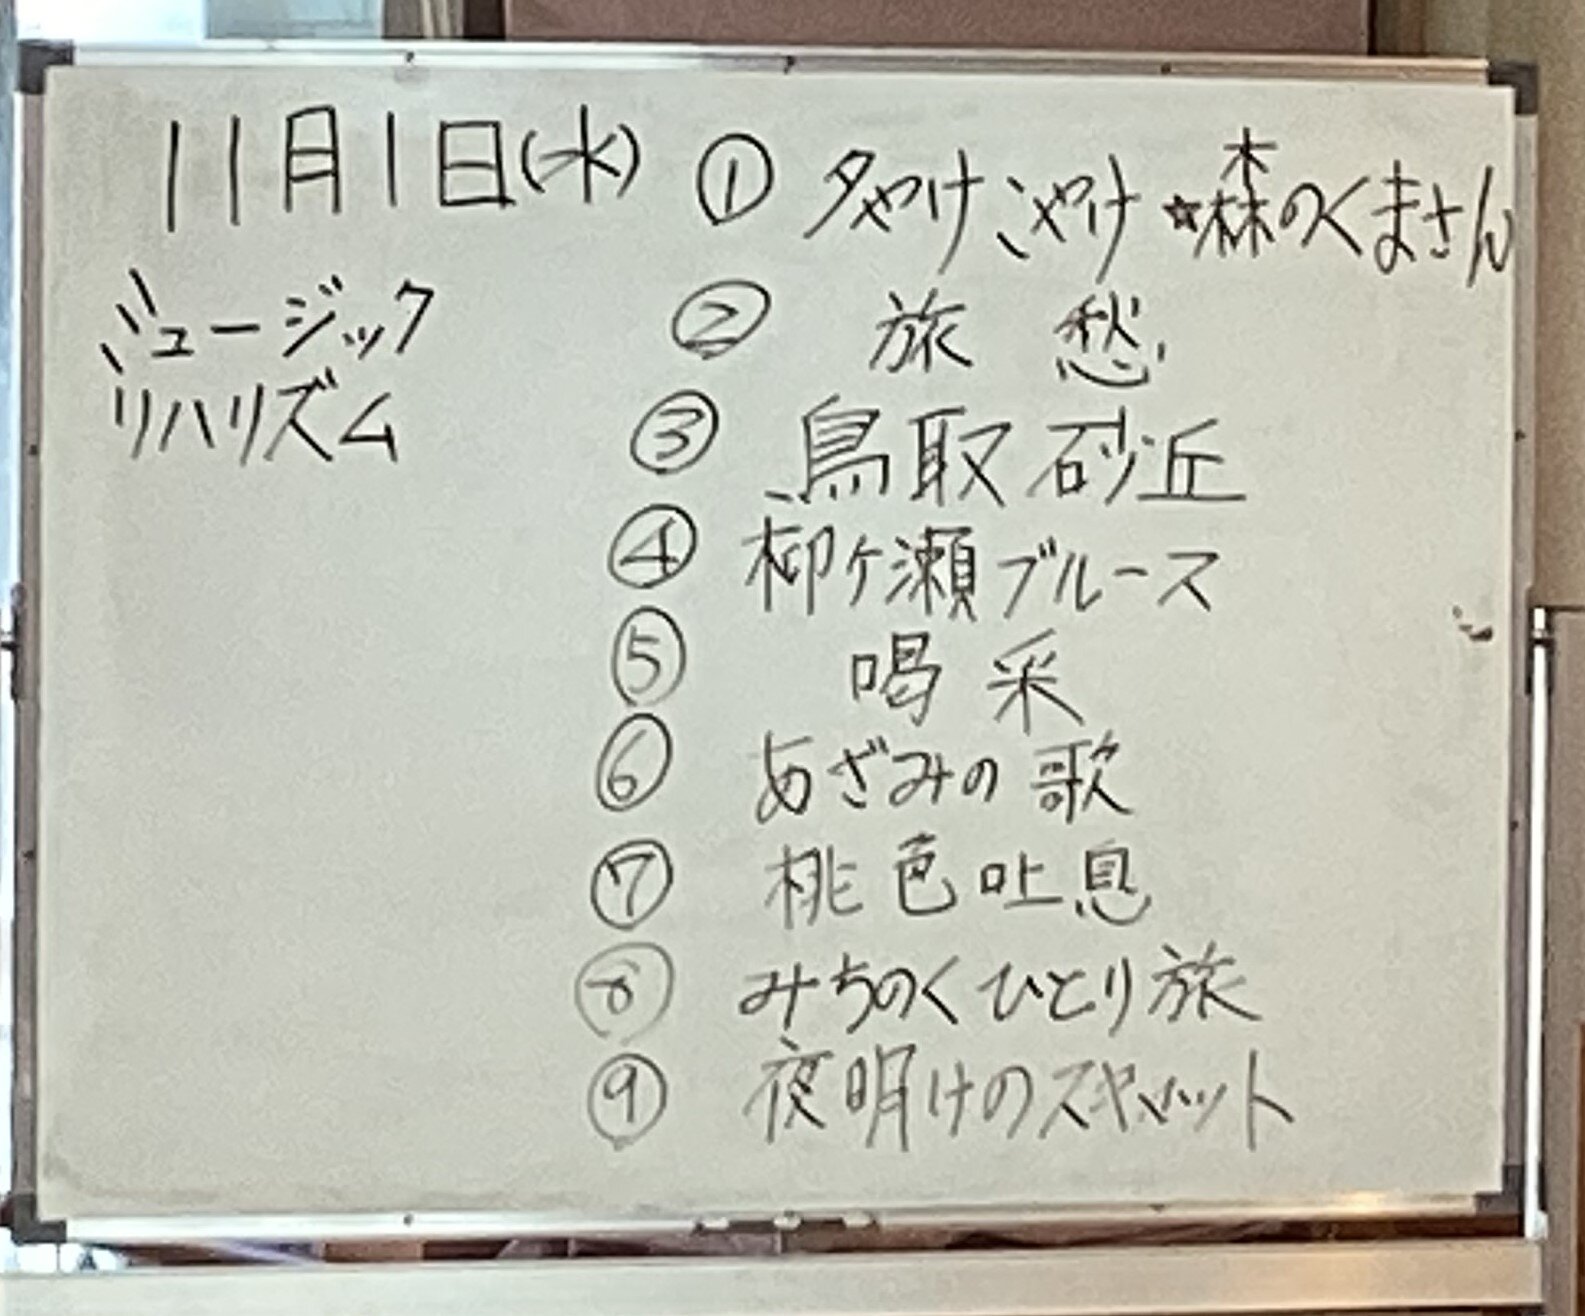 11月1日(水)
ミュージック
リハリズム
① 夕やけこやけ ★森のくまさん
② 旅愁
③ 鳥取砂丘
④ 柳ヶ瀬ブルース
⑤ 喝采
⑥ あざみの歌
⑦ 桃色吐息
⑧ みちのくひとり旅
⑨ 夜明けのスキャット